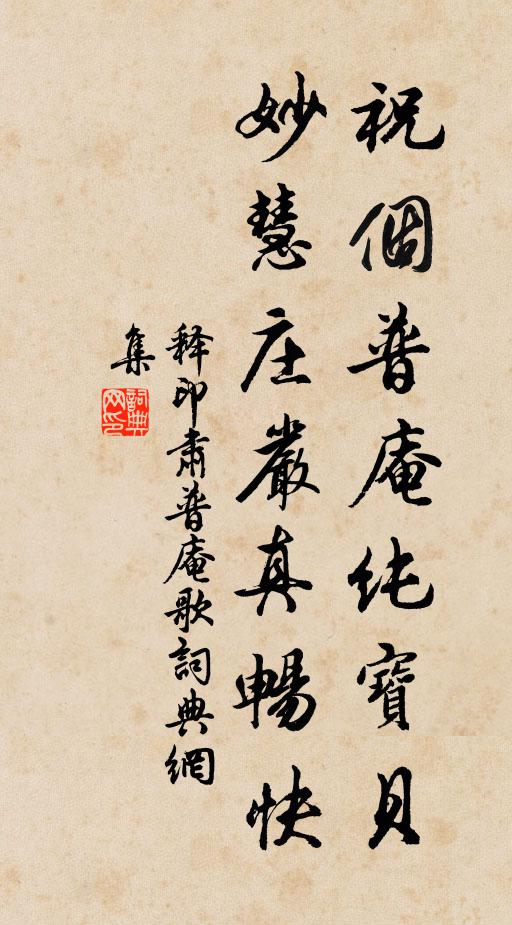 祝個普庵纯寶貝
妙慧庄嚴真暢快
释印肃普庵歌詞典網
集
詞典
网印